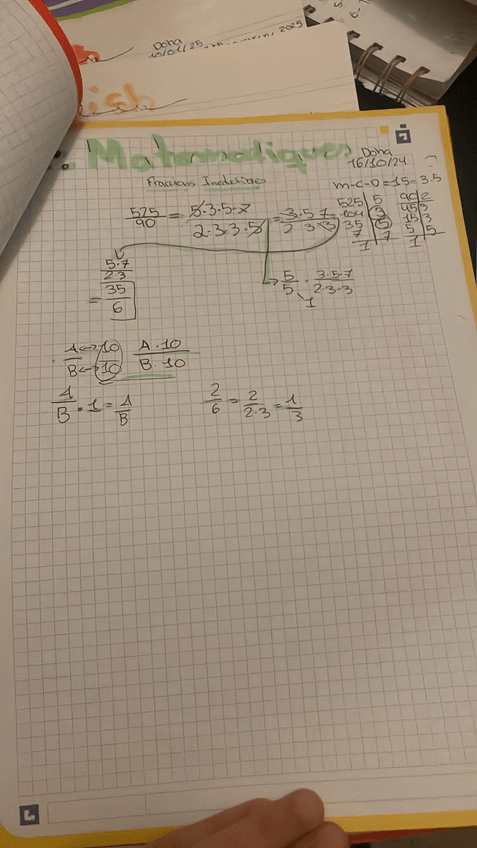 Doha
10/01/25
2025
ish
Matematiques
Doha
16/10/24
Fraccions Inedetiges
m-c-D=15=3·5
525/90 = 5·3·5·7/2·3·3·5 = 3·5·7/2·3·3
525 | 5
104 | 3
35 | 5
7 | 7
1
90 | 2
45 | 3
15 | 3
5 | 5
1
5·7/2·3
= 35/6
5/5 · 3·5·7/2·3·3
1
A↔10 A·10
B↔10 B·10
A/B · 1 = A/B
2/6 = 2/2·3 = 1/3